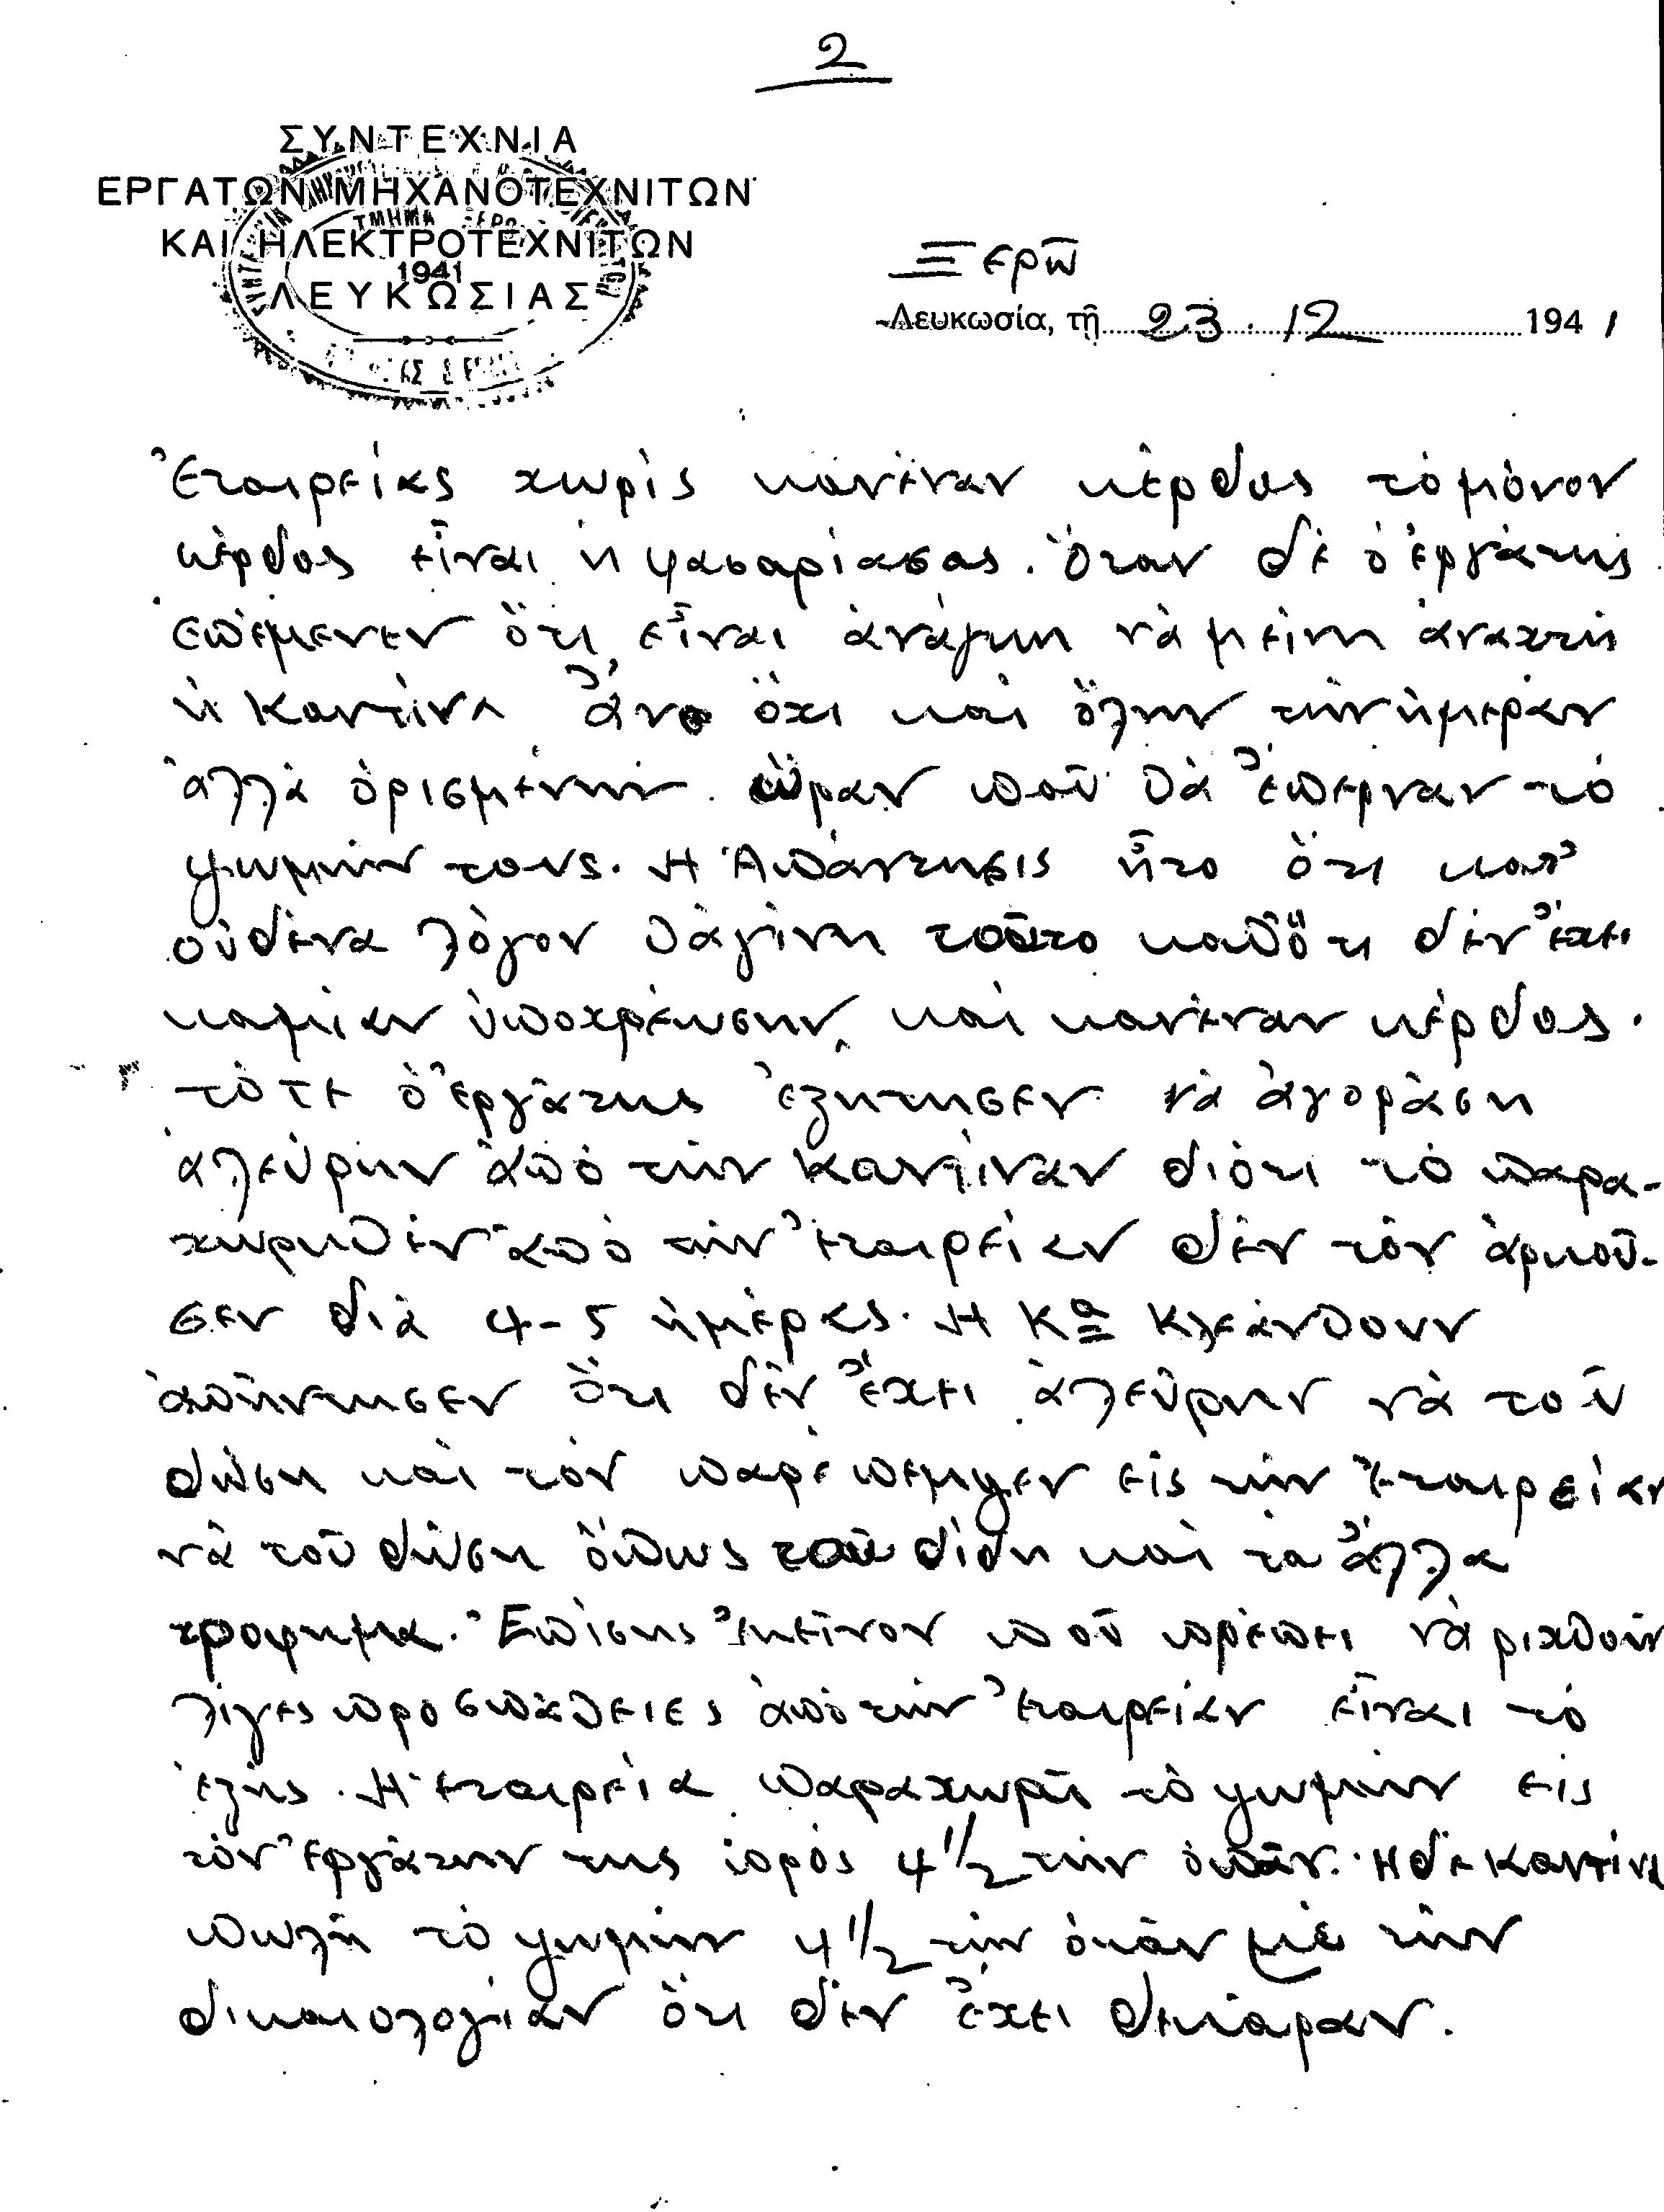 2
ΣΥΝΤΕΧΝΙΑ
ΕΡΓΑΤΩΝ ΜΗΧΑΝΟΤΕΧΝΙΤΩΝ
ΚΑΙ ΗΛΕΚΤΡΟΤΕΧΝΙΤΩΝ
ΛΕΥΚΩΣΙΑΣ
ΤΜΗΜΑ
1941
Ξερῶ
Λευκωσία, τῇ 23.12 1941
Ἑταιρείας χωρίς κανέναν κέρδος τὸ μόνον
κέρδος εἶναι ἡ φασαρίασας. Ὅταν δὲ ὁ ἐργάτης
ἐπέμενεν ὅτι εἶναι ἀνάγκη νὰ μείνη ἀναχτή
ἡ καντίνα ἄνο ὄχι καὶ ὅλην τὴν ἡμέραν
ἀλλὰ ὁρισμένην ὥραν ποῦ θὰ ἔπερναν τὸ
ψωμὴν τους. Ἡ Ἀπάντησις ἦτο ὅτι κατ'
οὐδένα λόγον θὰ γίνη τοῦτο καθὅτι δὲν ἔχει
καμίαν ὑποχρέωσην καὶ κανέναν κέρδος.
τότε ὁ ἐργάτης ἐζήτησεν νὰ ἀγοράση
ἀλεύρην ἀπὸ τὴν καντίναν διότι τὸ παρα-
χωρηθέν ἀπὸ τὴν ἑταιρείαν δὲν τὸν ἀρκοῦ-
σεν διὰ 4-5 ἡμέρας. Ἡ Κα Κλεάνθουν
ἀπήντησεν ὅτι δὲν ἔχει ἀλεύρην νὰ τοῦ
δώση καὶ τὸν παρέπεμψεν εἰς τὴν ἑταιρείαν
νὰ τοῦ δώση ὅπως τοῦ δίδη καὶ τα ἄλλα
τροφημα. Ἐπίσης ἐκεῖνον ποῦ πρέπει νὰ ριχθοῦν
λίγες προσπάθειες ἀπὸ τὴν ἑταιρείαν εἶναι τὸ
ἑξῆς. Ἡ ἑταιρεία παραχωρεῖ τὸ ψωμὴν εἰς
τὸν ἐργάτην της πρὸς 4 1/2 τὴν ὀκάν. Ἡ δὲ καντίνα
πωλῆ τὸ ψωμὴν 4 1/2 τὴν ὀκὰν μὲ τὴν
δικαιολογίαν ὅτι δὲν ἔχει δεκάραν.